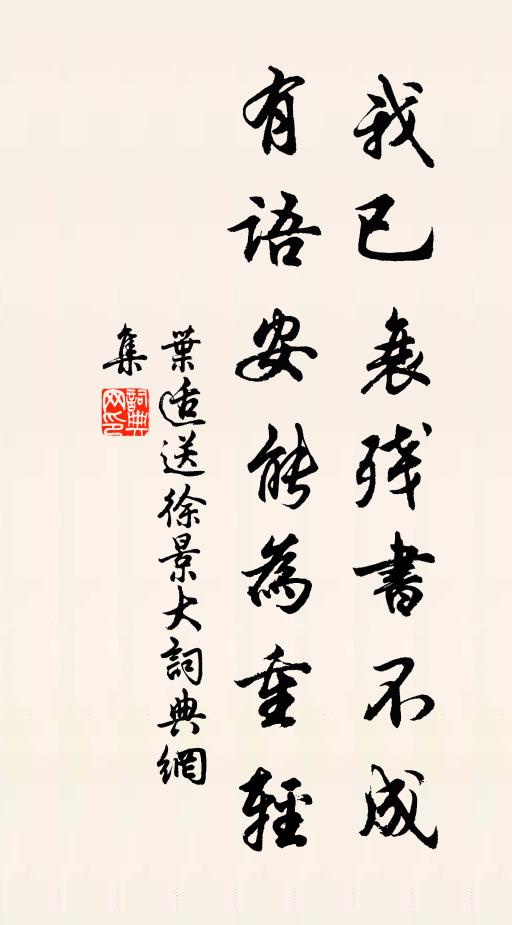 我已衰残書不成
有語安能為重輕
葉适送徐景大詞典網
集
詞典网印